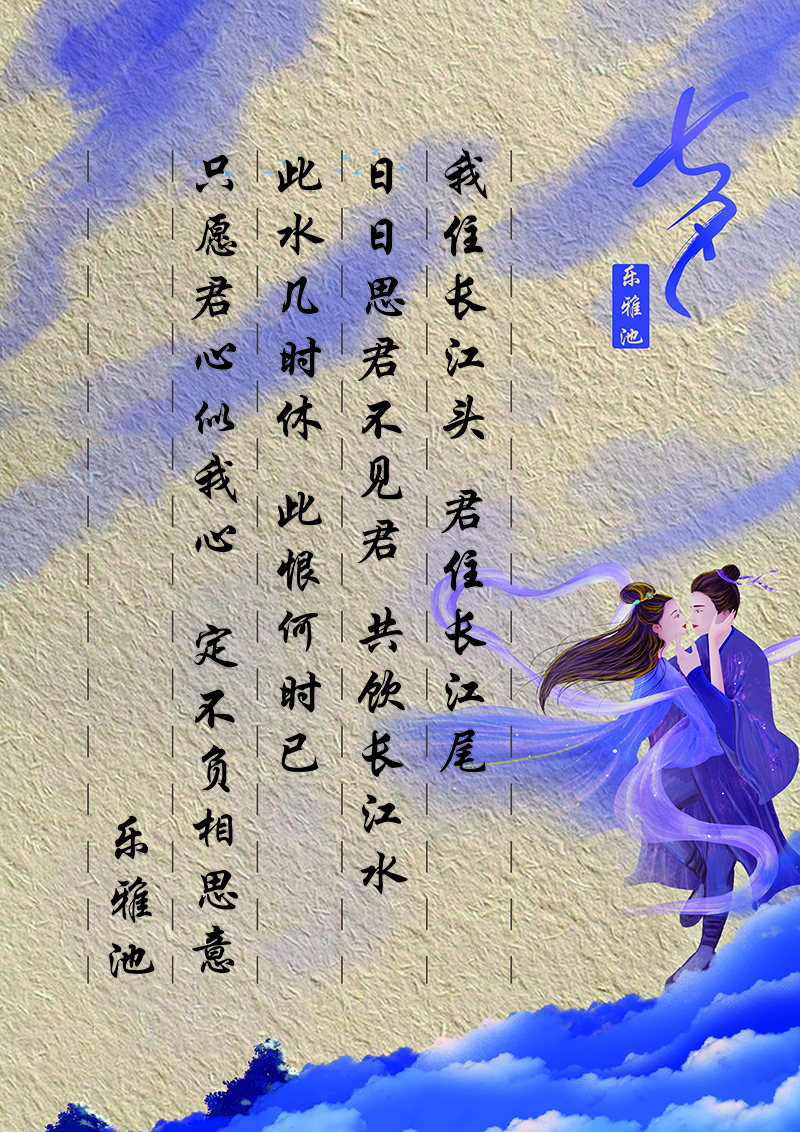 七夕
乐雅池
我住长江头 君住长江尾
日日思君不见君 共饮长江水
此水几时休 此恨何时已
只愿君心似我心 定不负相思意
乐雅池